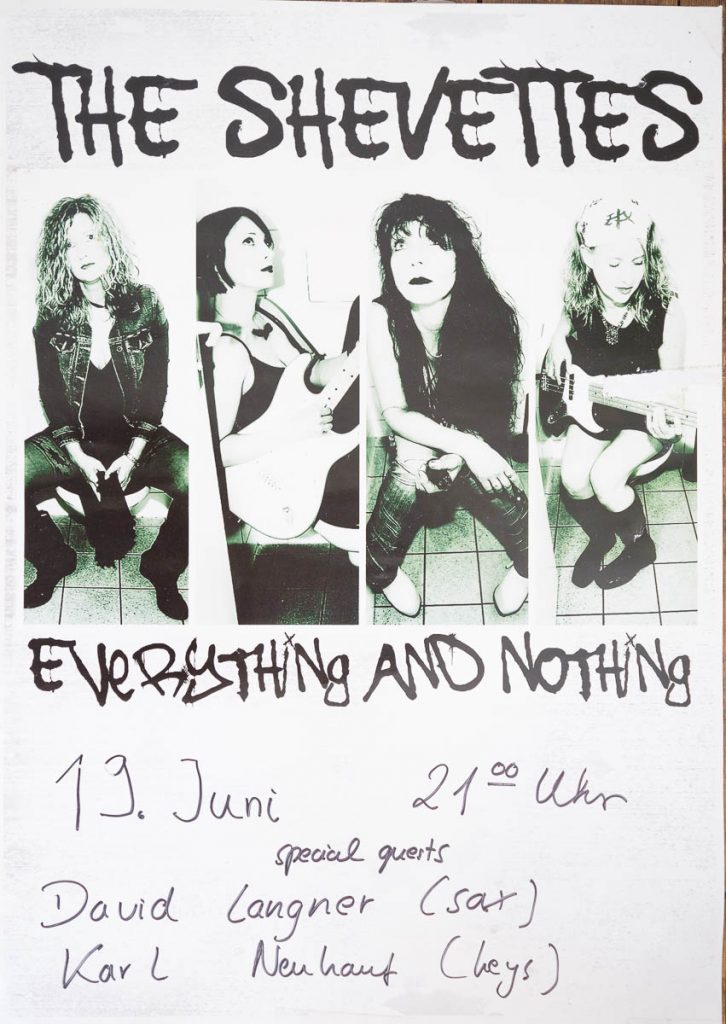 THE SHEVETTES
EVERYTHING AND NOTHING
19. Juni 21⁰⁰ Uhr
special guests
David Langner (sax)
Karl Neuhauf (keys)